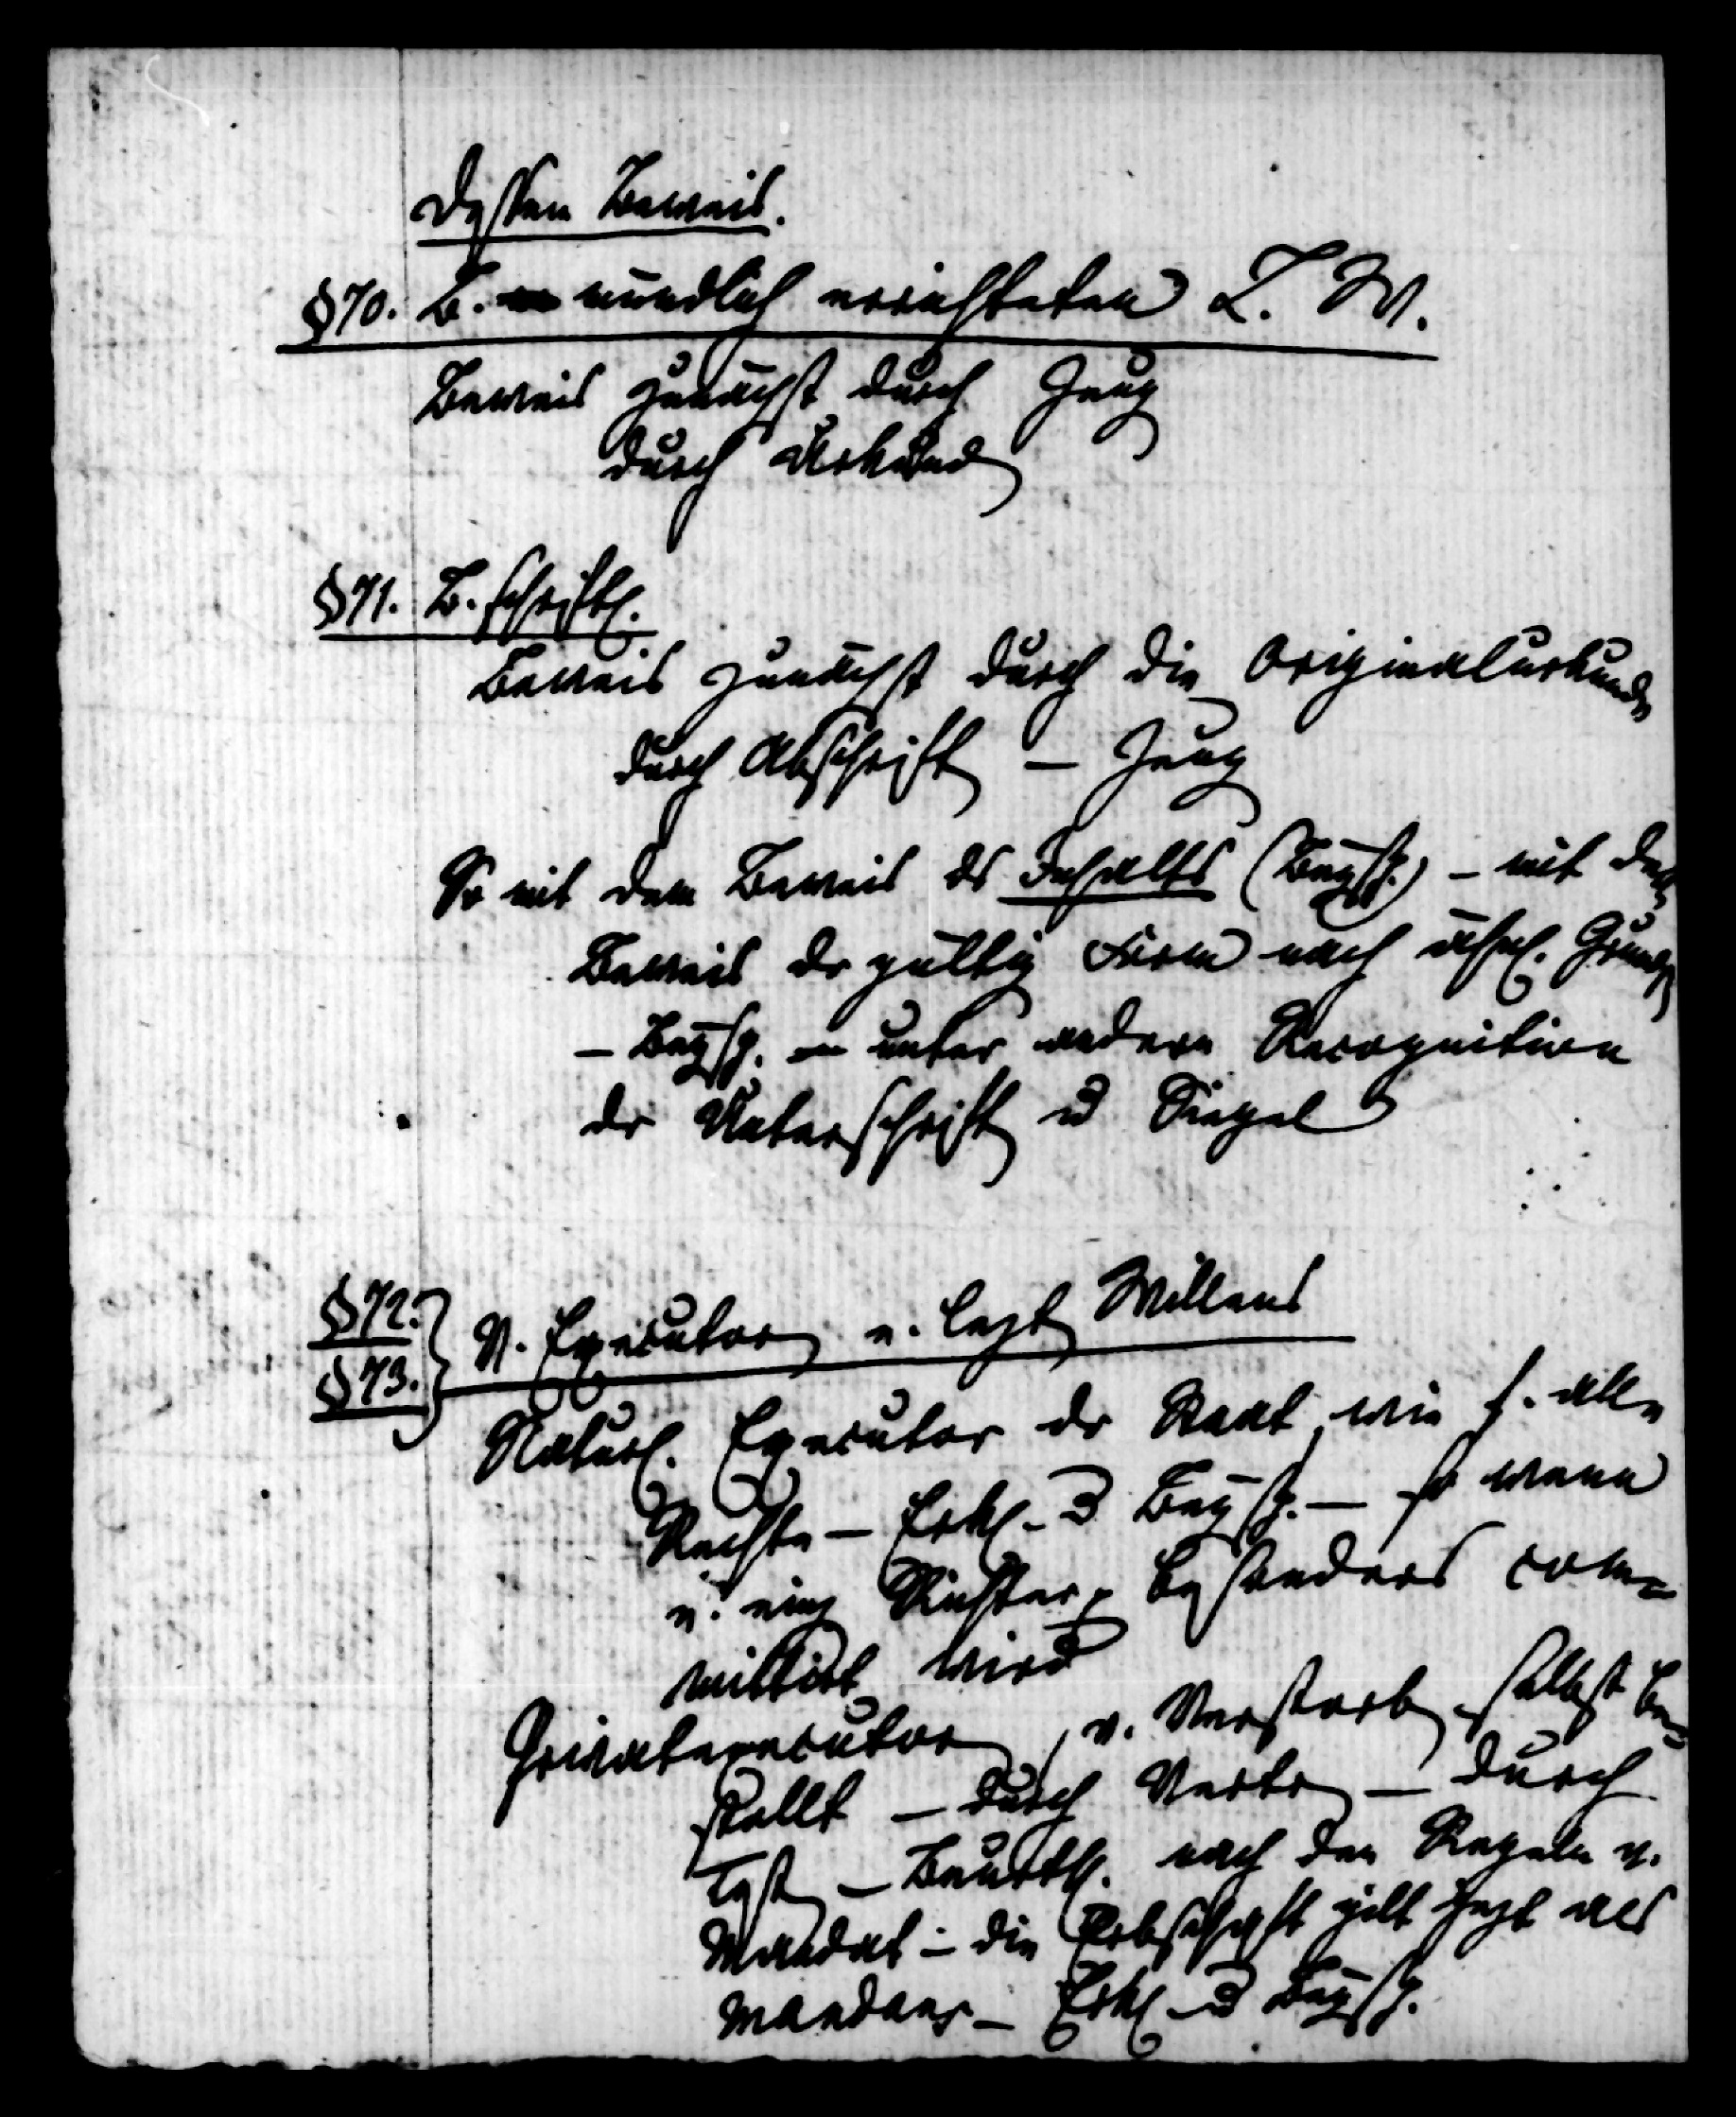 Dessen Beweis.
§70. B. mündlich errichteten L. W.
Beweis zunächst durch Zeug
durch Urkund
§71. B. schriftl.
Beweis zunächst durch die Originalurkunde
durch Abschrift – Zeug
So mit dem Beweis des Inhalts (Beysp.) – mit dem
Beweis der gültig Form nach ähnl. Grunds
– Beysp. unter andern Recognition
der Unterschrift u Siegel
§72. V. Executor v. lezt Willens
§73.
Natürl. Executor der Staat, wie f. alle
Rechte – Erkl. u Beysp. – so wenn
v. ein Richter besonders com=
mittirt wird
Privatexecutor, v. Verstorb selbst be=
stellt – durch Vertr – durch
Test – Beurthl. nach den Regeln v.
Mandat – die Erbschaft gilt hezt als
Mandans – Erkl. u Beysp.